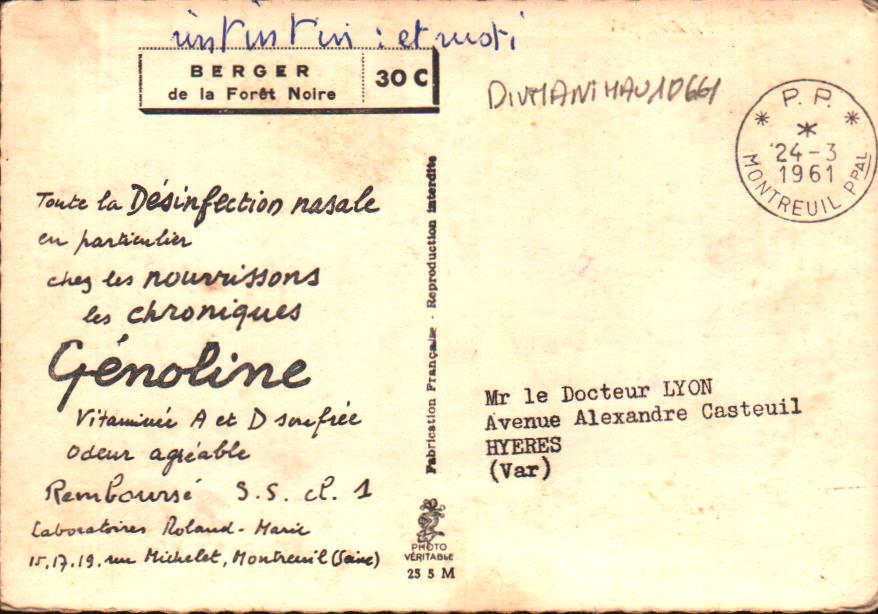 : et moti
BERGER
de la Forêt Noire
30 C
DIVMANIMAU10661
P. P.
24-3
1961
MONTREUIL PPAL
Toute la Désinfection nasale
en particulier
chez les nourrissons
les chroniques
Génoline
Vitaminée A et D soufrée
Odeur agréable
Remboursé S.S. cl. 1
Laboratoires Roland-Marie
15.17.19, rue Michelet, Montreuil (Seine)
Fabrication Française - Reproduction interdite
PHOTO
VÉRITABLE
25 5 M
Mr le Docteur LYON
Avenue Alexandre Casteuil
HYERES
(Var)